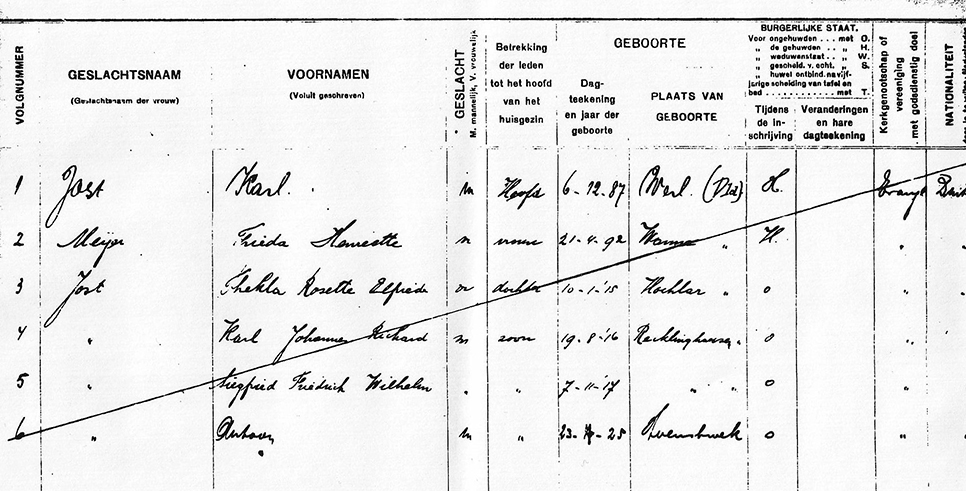 VOLGNUMMER
GESLACHTSNAAM
(Geslachtsnaam der vrouw)
VOORNAMEN
(Voluit geschreven)
GESLACHT
M. mannelijk, V. vrouwelijk
Betrekking
der leden
tot het hoofd
van het
huisgezin
GEBOORTE
Dag-
teekening
en jaar der
geboorte
PLAATS VAN
GEBOORTE
BURGERLIJKE STAAT.
Voor ongehuwden . . . met O.
„ de gehuwden . . „ H.
„ weduwenstaat . . „ W.
„ gescheid. v. echt. „ S.
„ huwel ontbind. na vijf-
jarige scheiding van tafel en
bed . . . . . . . . . . . met T.
Tijdens
de in-
schrijving
Veranderingen
en hare
dagteekening
Kerkgenootschap of
vereeniging
met godsdienstig doel
NATIONALITEIT
1 Jost Karl. m Hoofd 6-12-87 Werl (Dld) H.
2 Meijer Frieda Henriette vrouw 21-4-92 Wanne „ H.
3 Jost Thekla Rosette Elfriede dochter 10-1-'15 Hochlar „ O
4 „ Karl Johannes Richard m zoon 19-8-'16 Recklinghausen „ O „
5 „ Siegfried Friedrich Wilhelm „ „ 7-11-'17 „ „ O „
6 „ m „ O „